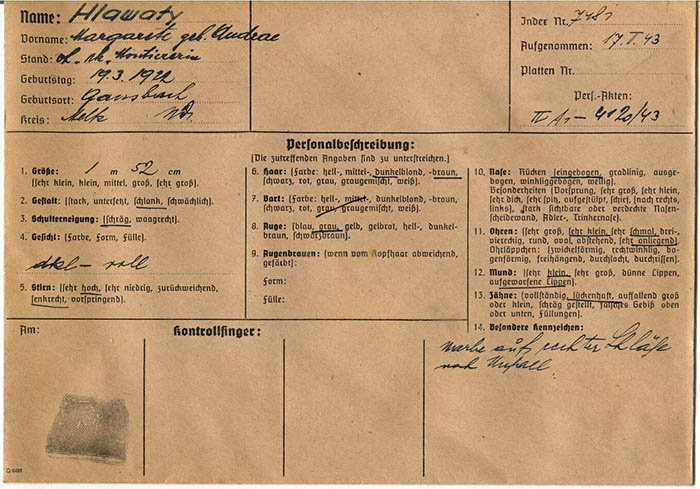 Name: Hlawaty
Vorname: Margarete geb. Andrae
Stand:
Geburtstag: 19.3.1922
Geburtsort: Gansbach
Kreis: Melk ND.
Index Nr. 748i
Aufgenommen: 17.II.43
Platten Nr.
Pers.-Akten:
4120/43
Personalbeschreibung:
(Die zutreffenden Angaben sind zu unterstreichen.)
1. Größe: 1 m 52 cm
(sehr klein, klein, mittel, groß, sehr groß).
2. Gestalt: (stark, untersetzt, schlank, schwächlich).
3. Schulterneigung: (schräg, waagrecht).
4. Gesicht: (Farbe, Form, Fülle).
dkl – voll
5. Stirn: (sehr hoch, sehr niedrig, zurückweichend,
senkrecht, vorspringend).
6. Haar: (Farbe: hell-, mittel-, dunkelblond, -braun,
schwarz, rot, grau, graugemischt, weiß).
7. Bart: (Farbe: hell-, mittel-, dunkelblond, -braun,
schwarz, rot, grau, graugemischt, weiß).
8. Auge: (blau, grau, gelb, gelbrot, hell-, dunkel-
braun, schwarzbraun).
9. Augenbrauen: (wenn vom Kopfhaar abweichend,
gefärbt):
Form:
Fülle:
10. Nase: Rücken (eingebogen, gradlinig, ausge-
bogen, winkliggebogen, wellig).
Besonderheiten (Vorsprung, sehr groß, sehr klein,
sehr dick, sehr spitz, aufgestülpt, schief, (nach rechts,
links), stark sichtbare oder verdeckte Nasen-
scheidewand, Adler-, Trinkernase).
11. Ohren: (sehr groß, sehr klein, sehr schmal, drei-,
viereckig, rund, oval, abstehend, sehr anliegend)
Ohrläppchen: (zwickelförmig, rechtwinklig, bo-
genförmig, freihängend, durchlocht, durchrissen).
12. Mund: (sehr klein, sehr groß, dünne Lippen,
aufgeworfene Lippen).
13. Zähne: (vollständig, lückenhaft, auffallend groß
oder klein, schräg gestellt, falsches Gebiß oben
oder unten, Füllungen).
14. Besondere Kennzeichen:
Narbe auf rechter Schläfe
nach Unfall
Am:
Kontrollfinger: